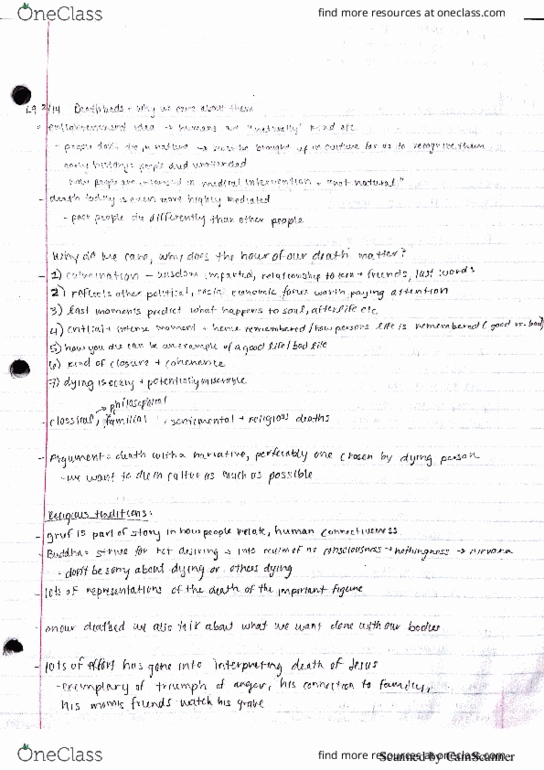 OneClass
find more resources at oneclass.com
L9 2/14 Deathbeds + why we care about them
enlightenment idea → humans are "naturally" kind
- people don't die in nature → must be brought up in culture for us to recognize them
early history: people died unattended
in medical intervention + "not natural"
- death today is even more highly mediated
- poor people die differently than other people
Why did we care, why does the hour of our death matter?
- 1) culmination - wisdom imparted, relationship to + friends, last words
2) reflects other political, economic worth paying attention
- 3) last moments predict what happens to soul, afterlife etc.
- 4) critical + intense moment + remembered / how persons life is remembered (good vs. bad)
- 5) how you die can be an example of a good life / bad life
- 6) kind of closure + coherence
- 7) dying is scary + potentially miserable
→ philosophical
- classical, familial, sentimental + religious deaths
- Argument: death with a narrative, preferably one chosen by dying person
- we want to die in as much as possible
Religious traditions:
- grief is part of story in how people relate, human connectiveness
- Buddha: strive for not desiring → into realm of no consciousness → nothingness → nirvana
- don't be sorry about dying or others dying
- lots of representations of the death of the important figure
- on our deathbed we also talk about what we want done with our bodies
- lots of effort has gone into interpreting death of Jesus
- exemplary of triumph of anger, his connection to family,
his moms friends watch his grave
OneClass
find more resources at oneclass.com
Scanned by CamScanner